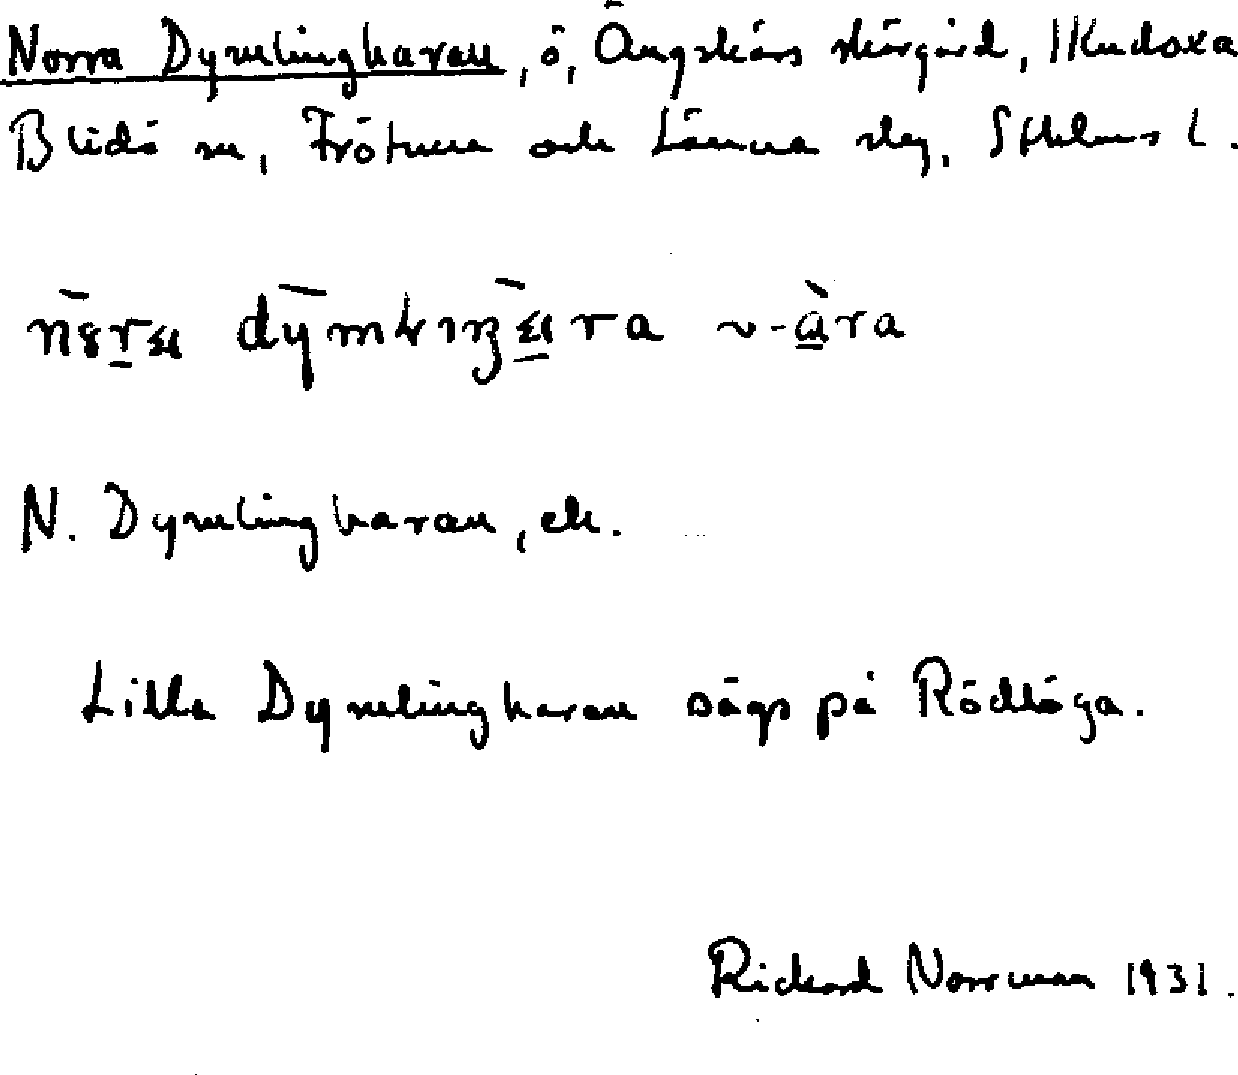 Norra Dymlingharan, ö, Ängskärs skärgård, 1 Kudoxa
Blidö sn, Frötuna och Länna skg, Sthlms l.
N. Dymlingharan, ek.
Lilla Dymlingharan sägs på Rödlöga.
Rickard Norrman 1931.